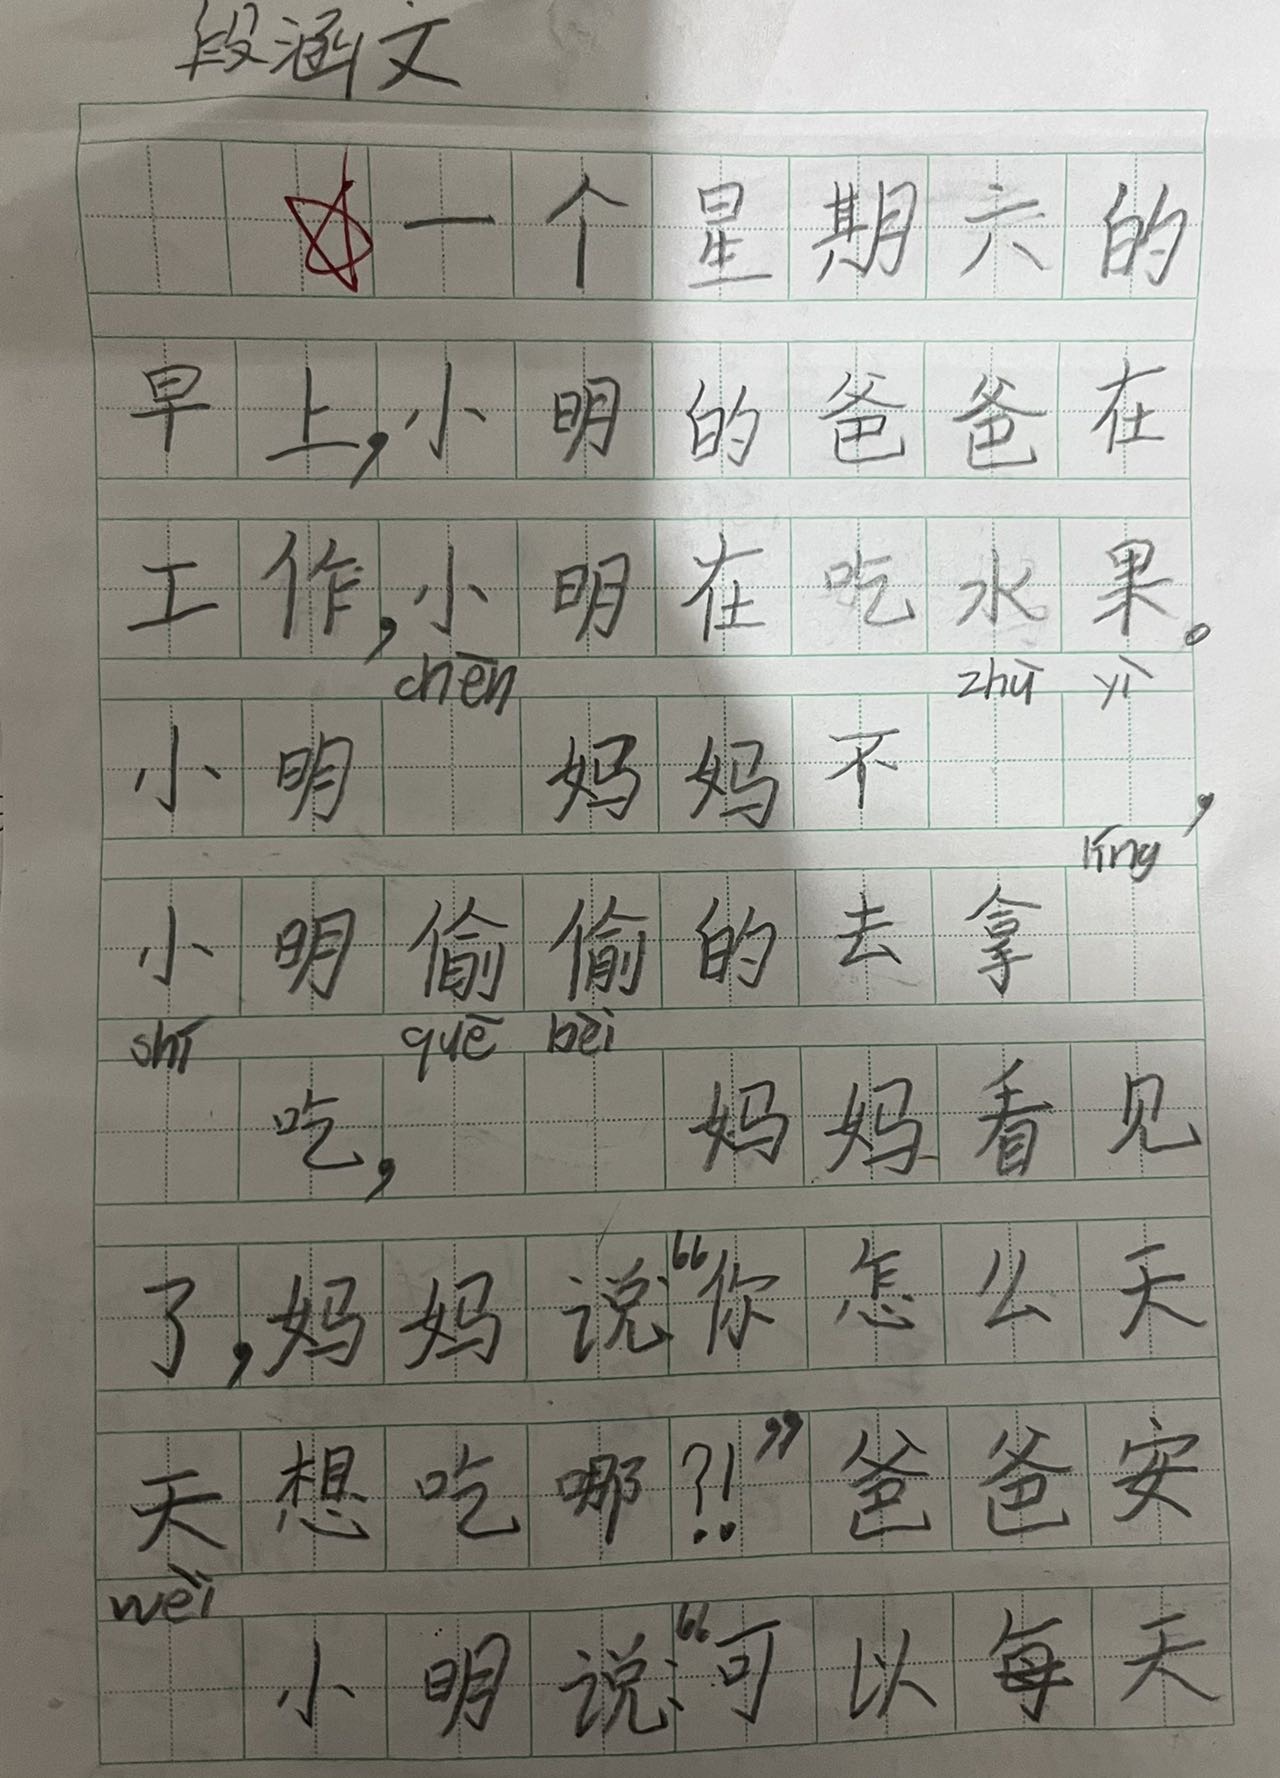 段涵文
一个星期六的
早上,小明的爸爸在
工作,小明在吃水果。
chēn zhù yì
小明 妈妈不 ,
líng
小明偷偷的去拿
shí quē bèi
吃, 妈妈看见
了,妈妈说“你怎么天
天想吃哪?!”爸爸安
wèi
小明说:“可以每天